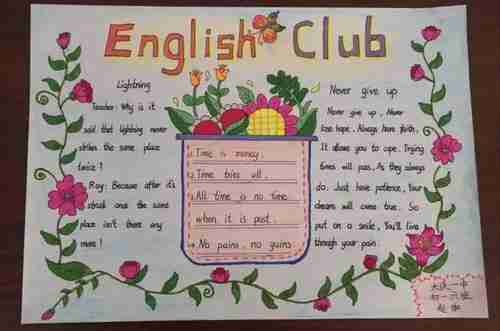 English Club
Lightning
Teacher: Why is it
said that lightning never
strikes the same place
twice?
Ray: Because after it's
struck once the same
place isn't there any
more!
Time is money.
Time tries all.
All time is no time
when it is past.
No pains, no gains
Never give up
Never give up, Never
lose hope. Always have faith,
It allows you to cope. Trying
times will pass, As they always
do. Just have patience, Your
dreams will come true. So
put on a smile, You'll live
through your pain.
大庆一中
初一六班